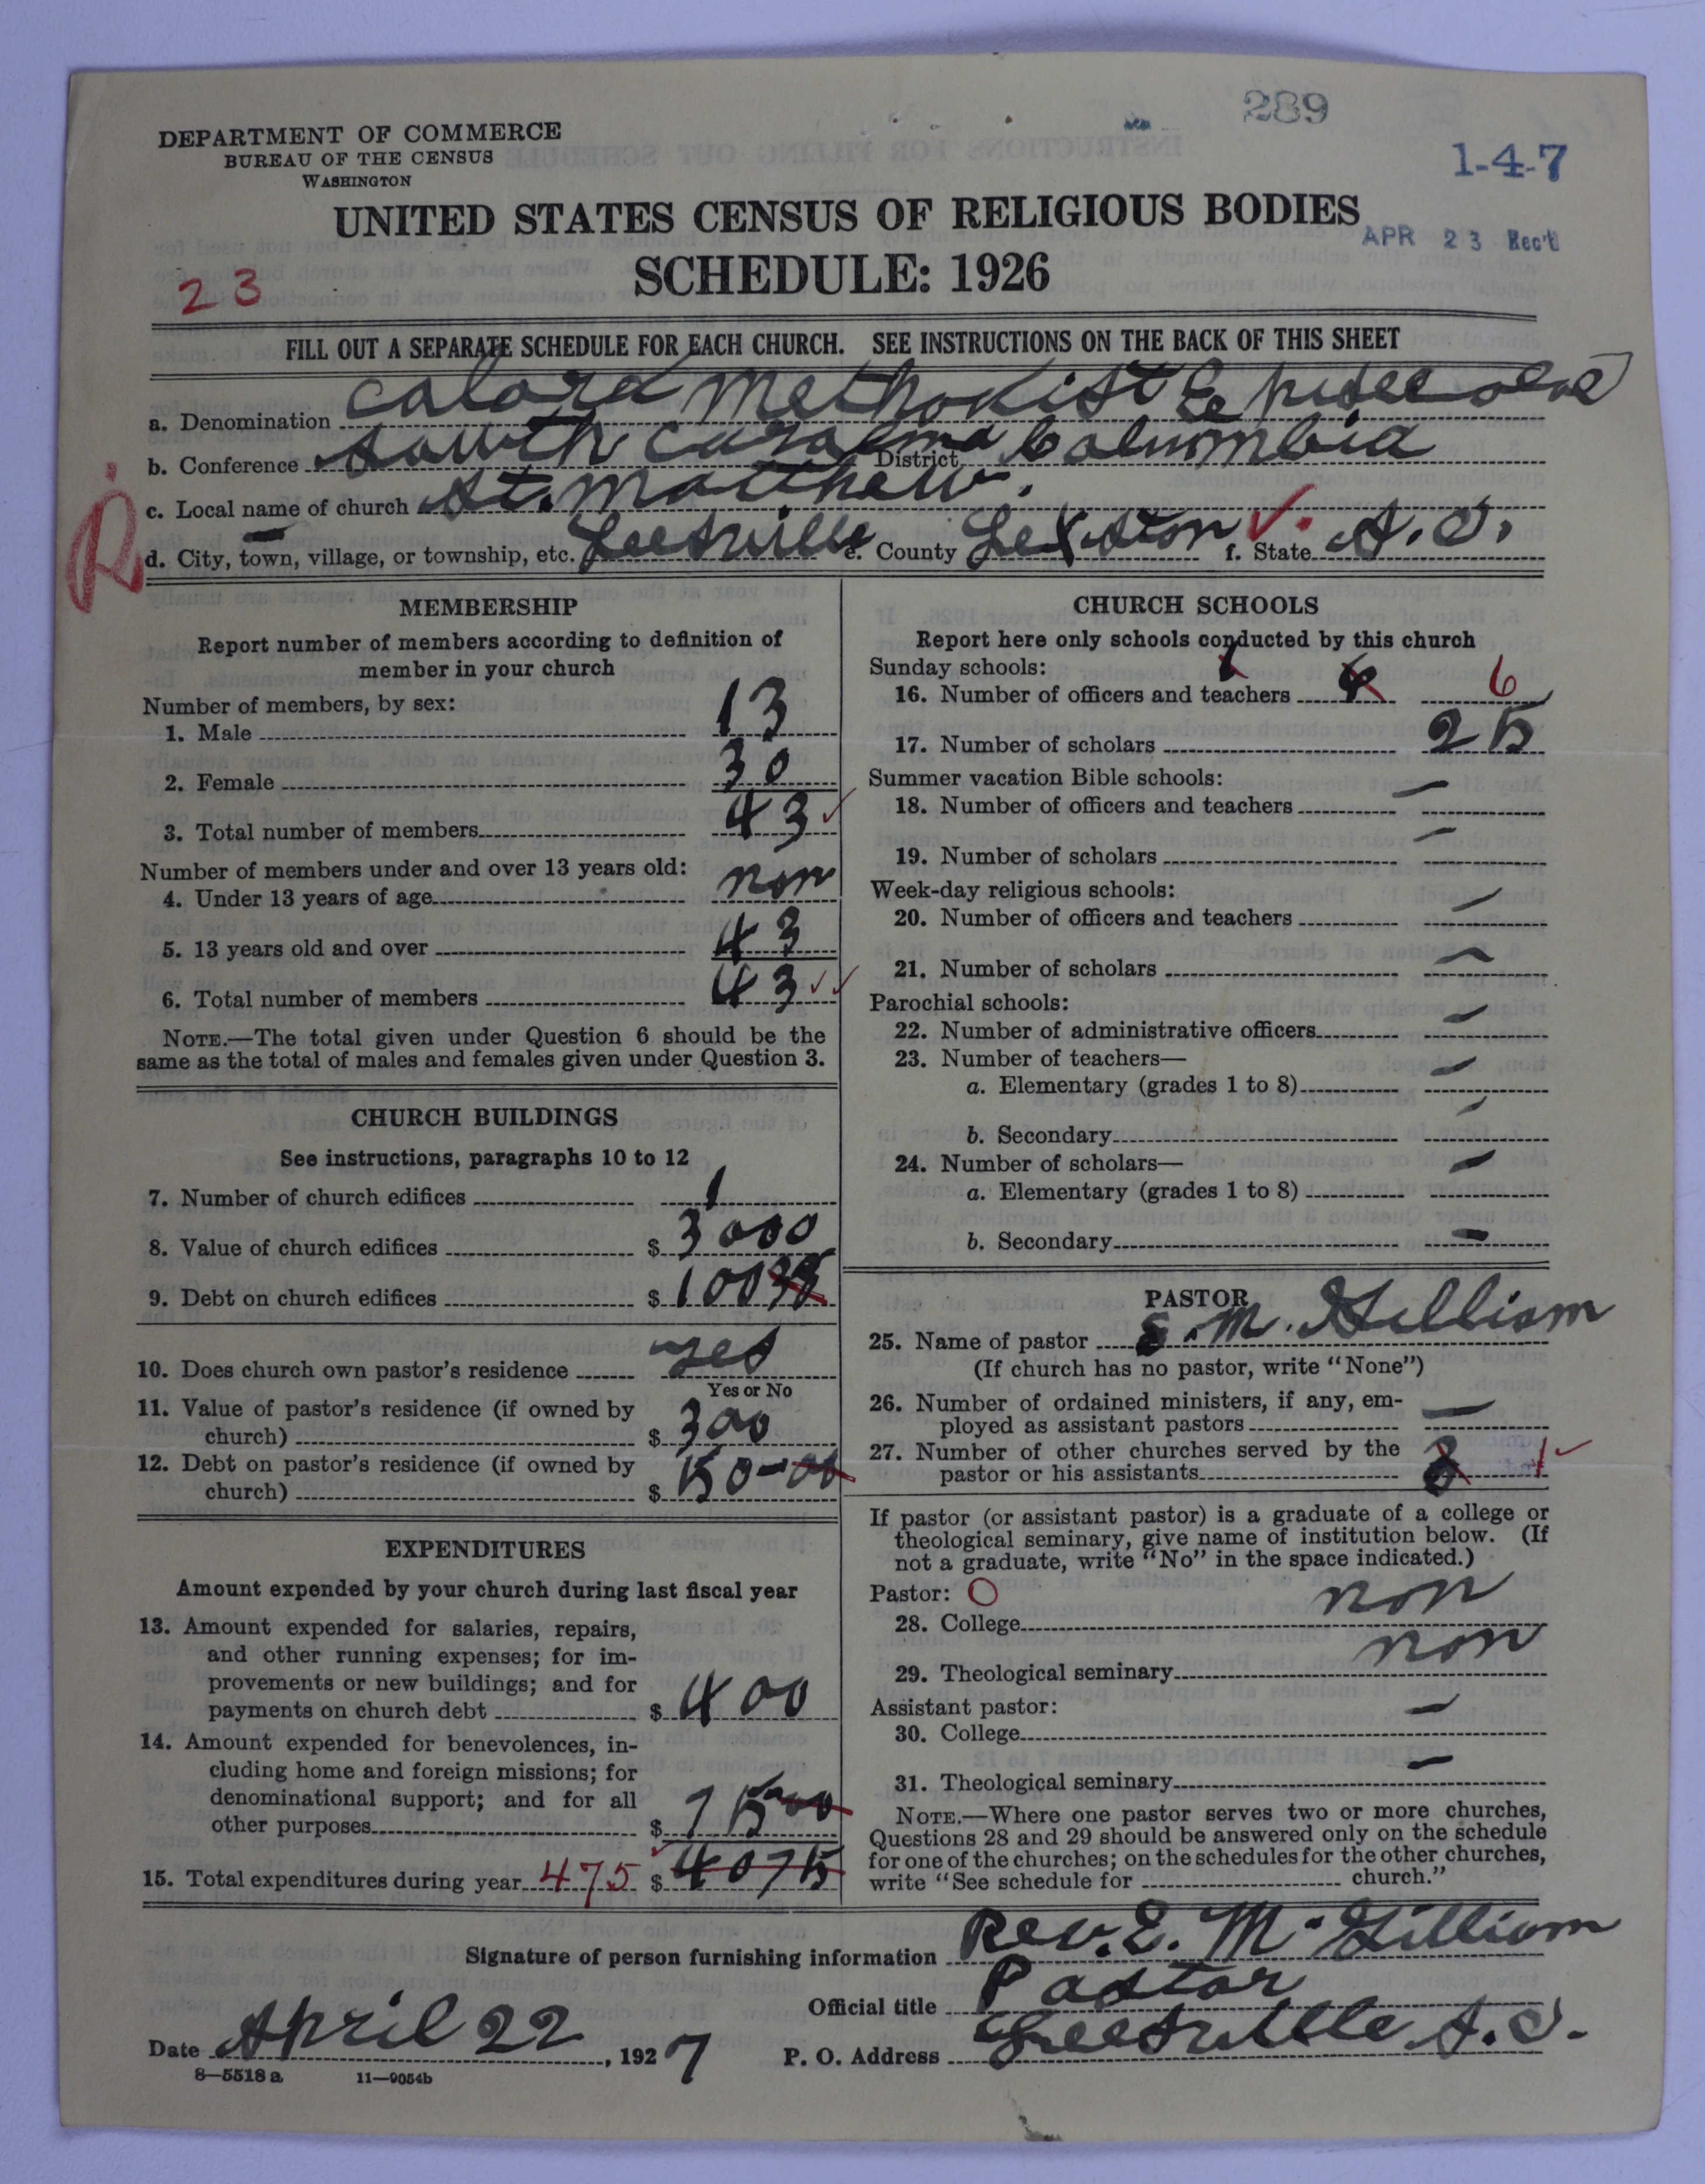 289
1-4-7
DEPARTMENT OF COMMERCE
BUREAU OF THE CENSUS
WASHINGTON
UNITED STATES CENSUS OF RELIGIOUS BODIES
APR 23 Rec't
SCHEDULE: 1926
23
FILL OUT A SEPARATE SCHEDULE FOR EACH CHURCH. SEE INSTRUCTIONS ON THE BACK OF THIS SHEET
a. Denomination Methodist
b. Conference South Carolina District Columbia
R
c. Local name of church St. Matthew.
d. City, town, village, or township, etc. Leesville e. County Lexston f. State S.C.
MEMBERSHIP
Report number of members according to definition of
member in your church
Number of members, by sex:
1. Male 13
2. Female 30
3. Total number of members 43
Number of members under and over 13 years old:
4. Under 13 years of age non
5. 13 years old and over 43
6. Total number of members 43
NOTE.—The total given under Question 6 should be the
same as the total of males and females given under Question 3.
CHURCH BUILDINGS
See instructions, paragraphs 10 to 12
7. Number of church edifices 1
8. Value of church edifices $ 3000
9. Debt on church edifices $ 100
10. Does church own pastor's residence yes
Yes or No
11. Value of pastor's residence (if owned by
church) $ 300
12. Debt on pastor's residence (if owned by
church) $ 50-00
EXPENDITURES
Amount expended by your church during last fiscal year
13. Amount expended for salaries, repairs,
and other running expenses; for im-
provements or new buildings; and for
payments on church debt $ 400
14. Amount expended for benevolences, in-
cluding home and foreign missions; for
denominational support; and for all
other purposes $ 75-00
15. Total expenditures during year 475 $ 4075
CHURCH SCHOOLS
Report here only schools conducted by this church
Sunday schools:
16. Number of officers and teachers 6
17. Number of scholars 25
Summer vacation Bible schools:
18. Number of officers and teachers —
19. Number of scholars —
Week-day religious schools:
20. Number of officers and teachers —
21. Number of scholars —
Parochial schools:
22. Number of administrative officers —
23. Number of teachers—
a. Elementary (grades 1 to 8) —
b. Secondary —
24. Number of scholars—
a. Elementary (grades 1 to 8) —
b. Secondary —
PASTOR
25. Name of pastor E. M. Gilliam
(If church has no pastor, write "None")
26. Number of ordained ministers, if any, em-
ployed as assistant pastors —
27. Number of other churches served by the
pastor or his assistants 1
If pastor (or assistant pastor) is a graduate of a college or
theological seminary, give name of institution below. (If
not a graduate, write "No" in the space indicated.)
Pastor: O
28. College non
29. Theological seminary non
Assistant pastor:
30. College —
31. Theological seminary —
NOTE.—Where one pastor serves two or more churches,
Questions 28 and 29 should be answered only on the schedule
for one of the churches; on the schedules for the other churches,
write "See schedule for church."
Signature of person furnishing information Rev. E. M. Gilliam
Official title Pastor
Date April 22, 1927 P. O. Address Leesville S.C.
8—5518a 11—9054b